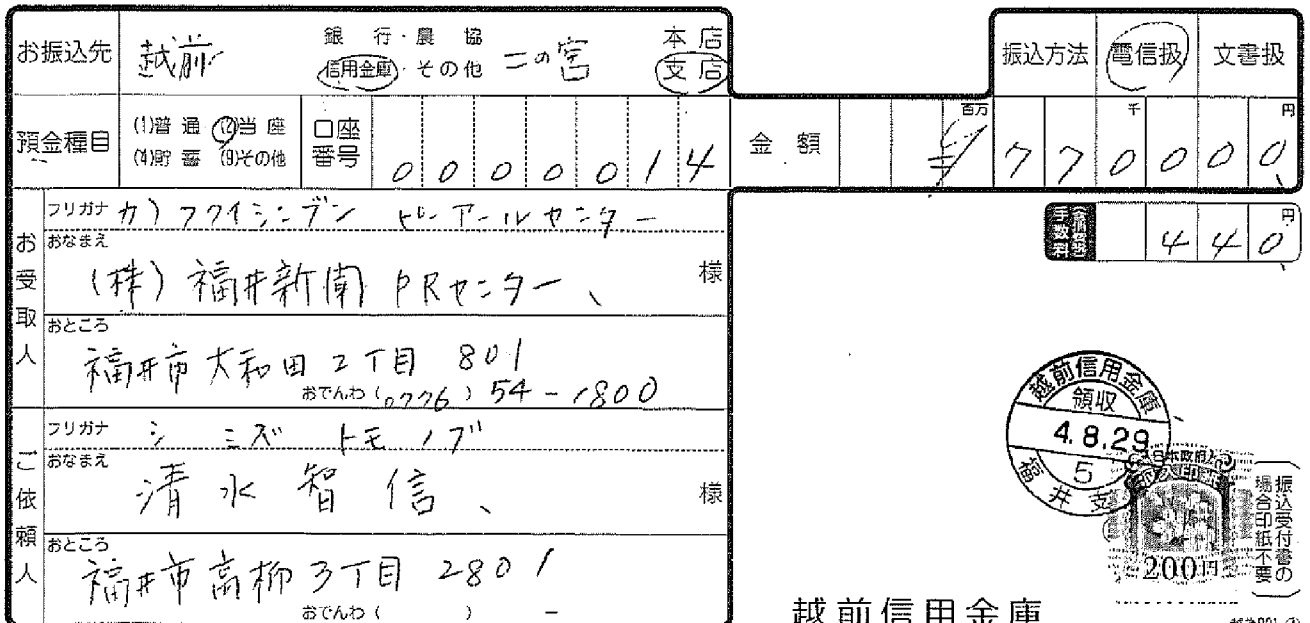 お振込先 越前 銀行・農協 信用金庫・その他 二の宮 本店 支店
振込方法 電信扱 文書扱
預金種目 (1)普通 (2)当座 (4)貯蓄 (9)その他 口座番号 0000014
金額 百万 千 円 ¥770000
フリガナ カ)フクイシンブン ピーアールセンター
手数料 440円
お受取人
おなまえ (株)福井新聞PRセンター 様
おところ 福井市大和田2丁目 801
おでんわ (0776) 54-1800
ご依頼人
フリガナ シミズ トモノブ
おなまえ 清水智信 様
おところ 福井市高柳3丁目 2801
おでんわ ( ) -
越前信用金庫
領収
4.8.29
5
福井支
日本政府
200円
振込受付書の場合印紙不要
越前信用金庫